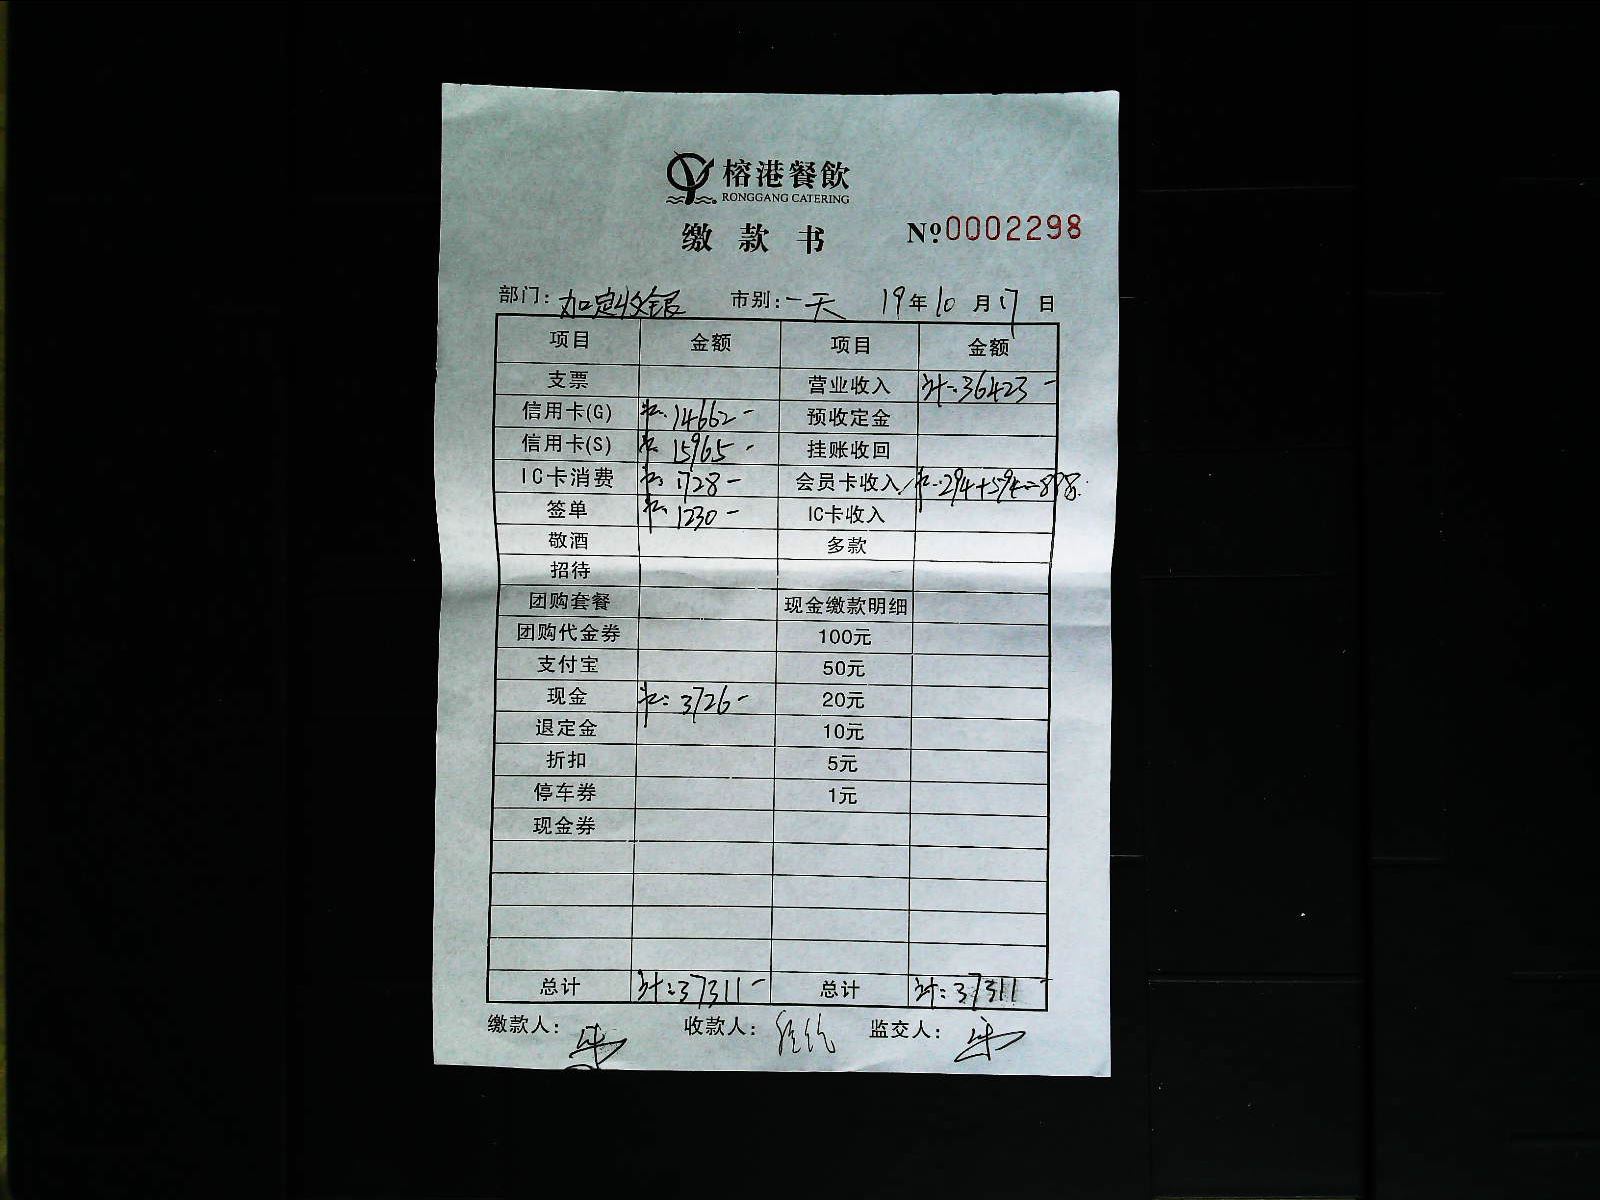 榕港餐飲
RONGGANG CATERING
缴款书 Nº0002298
部门：加定收银 市别：一天 19年10月17日
项目 金额 项目 金额
支票 营业收入 计:36423-
信用卡(G) 14662- 预收定金
信用卡(S) 15965- 挂账收回
IC卡消费 1728- 会员卡收入 294+594=888.
签单 1230- IC卡收入
敬酒 多款
招待
团购套餐 现金缴款明细
团购代金券 100元
支付宝 50元
现金 3726- 20元
退定金 10元
折扣 5元
停车券 1元
现金券
总计 计:37311- 总计 计:37311-
缴款人： 收款人： 监交人：